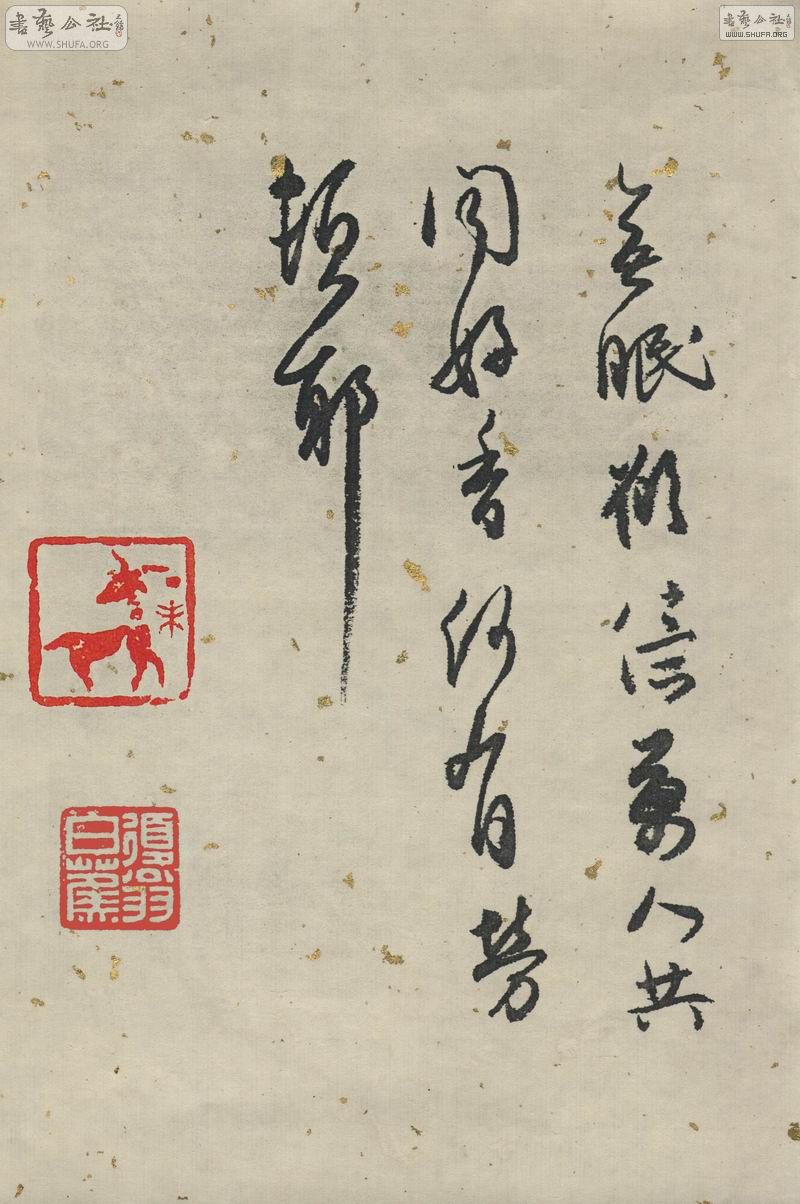 書藝公社
WWW.SHUFA.ORG
書藝公社
WWW.SHUFA.ORG
無眠 信 人共
聞好香何有勞
頓耶
未
復翁白蕉